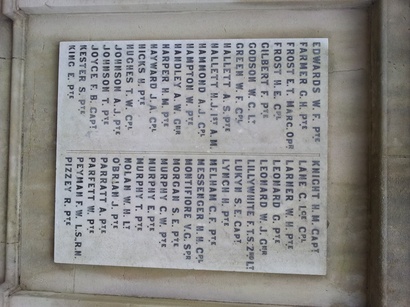 EDWARDS W. F. PTE
FARMER G. H. PTE
FROST E. T. MARC. OPR
FROST H. E. CPL
GILBERT F. PTE
GODSON W. C. LT
GREEN W. F. CPL
HALLETT A. S. PTE
HALLETT H. J. 1ST A. M.
HAMMOND A. J. CPL
HAMPTON W. PTE
HANDLEY A. W. GNR
HARPER H. M. PTE
HAYWARD J. A. CPL
HICKS H. T. PTE
HUGHES T. W. CPL
JOHNSON A. J. PTE
JOHNSON T. PTE
JOYCE F. B. CAPT
KESTER S. PTE
KING E. PTE
KNIGHT H. M. CAPT
LANE C. LCE CPL
LARNER W. H. PTE
LEONARD G. PTE
LEONARD W. J. GNR
LILLYWHITE F. T. S. 2ND LT
LUKYN S. E. CAPT
LYNCH H. PTE
MELHAM C. F. PTE
MESSENGER H. H. CPL
MONTIFIORE V. G. SPR
MORGAN S. E. PTE
MURPHY C. W. PTE
MURPHY E. PTE
MURPHY T. PTE
NOLAN W. H. LT
O'BRIAN J. PTE
PARRATT A. PTE
PARFETT W. PTE
PEYMAN F. W. L. S. R. N.
PIZZEY R. PTE